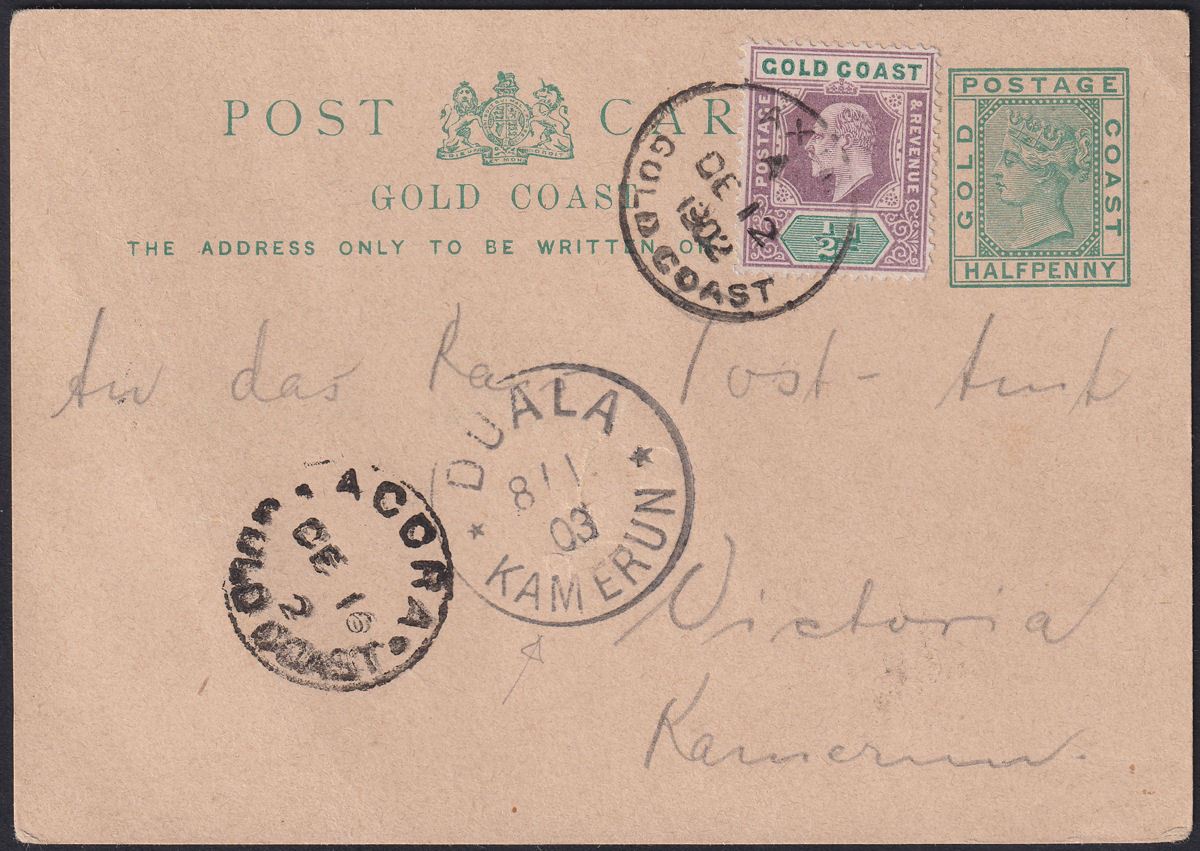 POST CAR
GOLD COAST
THE ADDRESS ONLY TO BE WRITTEN ON
GOLD COAST
POSTAGE
& REVENUE
½
POSTAGE
GOLD
COAST
HALFPENNY
AX
A
DE 12
1902
GOLD COAST
An das Kais. Post-Amt
DUALA
8 1 1
03
KAMERUN
ACCRA
DE 16
2
GOLD COAST
Victoria
Kamerun.